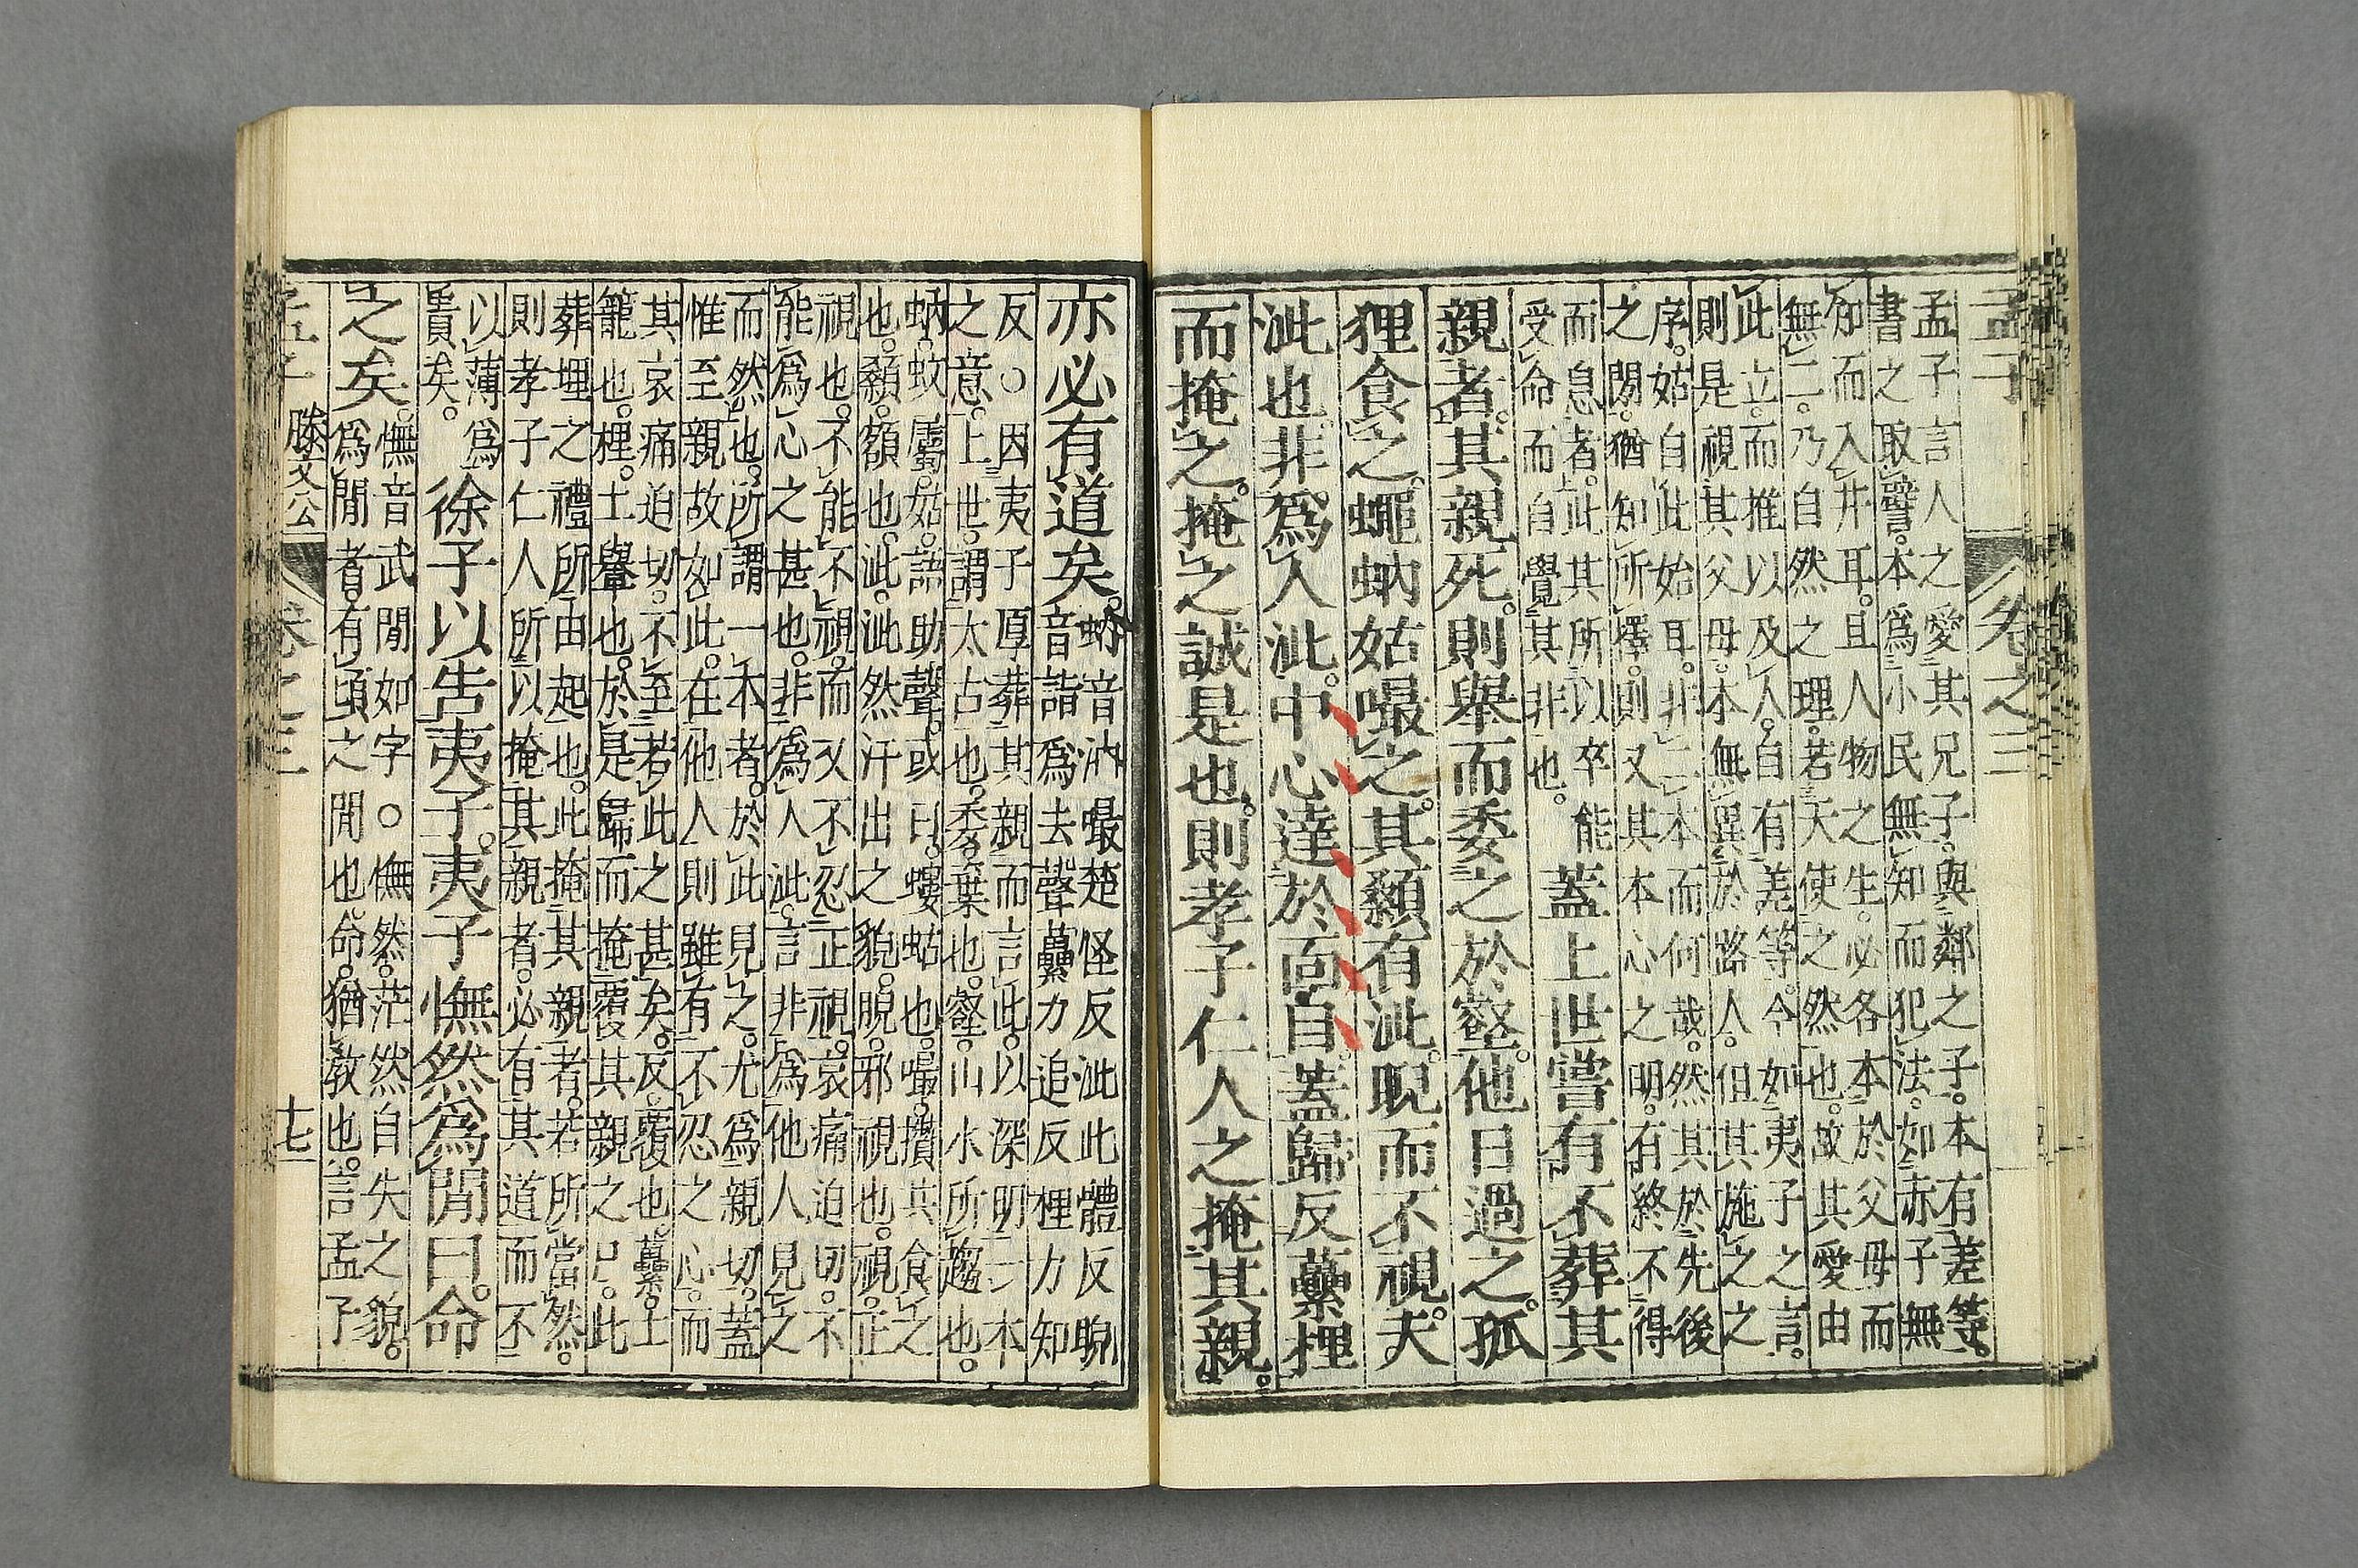 孟子 卷之三
孟子言人之愛其兄子。與鄰之子。本有差等。
書之取譬。本爲小民無知而犯法。如赤子無
匍而入井耳。且人物之生。必各本於父母而
無二。乃自然之理。若天使之然也。故其愛由
此立。而推以及人。自有差等。今如夷子之言。
則是視其父母。本無異於路人。但其施之之
序。姑自此始耳。非二本而何哉。然其於先後
之閒。猶知所擇。則又其本心之明。有終不得
而息者。此其所以卒能
受命而自覺其非也。
蓋上世嘗有不葬其
親者。其親死。則舉而委之於壑。他日過之。狐
狸食之。蠅蚋姑嘬之。其顙有泚。睨而不視。夫
泚也。非爲人泚。中心達於面自。蓋歸反虆梩
而掩之。掩之誠是也。則孝子仁人之掩其親。
亦必有道矣。
蚋音汭嘬楚怪反泚此體反睨
音詣爲去聲虆力追反梩力知
反○因夷子厚葬其親而言此。以深明一本
之意。上世。謂太古也。委。棄也。壑。山水所趨也。
蚋。蚊屬。姑。語助聲。或曰。螻蛄也。嘬。攢共食之
也。顙。額也。泚。泚然汗出之貌。睨。邪視也。視。正
視也。不能不視。而又不忍正視。哀痛迫切。不
能爲心之甚也。非爲人泚。言非爲他人見之
而然也。所謂一本者。於此見之。尤爲親切。蓋
惟至親故如此。在他人則雖有不忍之心。而
其哀痛迫切。不至若此之甚矣。反。覆也。虆。土
籠也。梩。土轝也。於是歸而掩覆其親之尸。此
葬埋之禮所由起也。此掩其親者。若所當然。
則孝子仁人所以掩其親者。必有其道而不
以薄爲
貴矣。
徐子以告夷子。夷子憮然爲閒曰。命
之矣。
憮音武閒如字○憮然。茫然自失之貌。
爲閒者。有頃之閒也。命。猶敎也。言孟子
孟子 滕文公 卷之三 十七